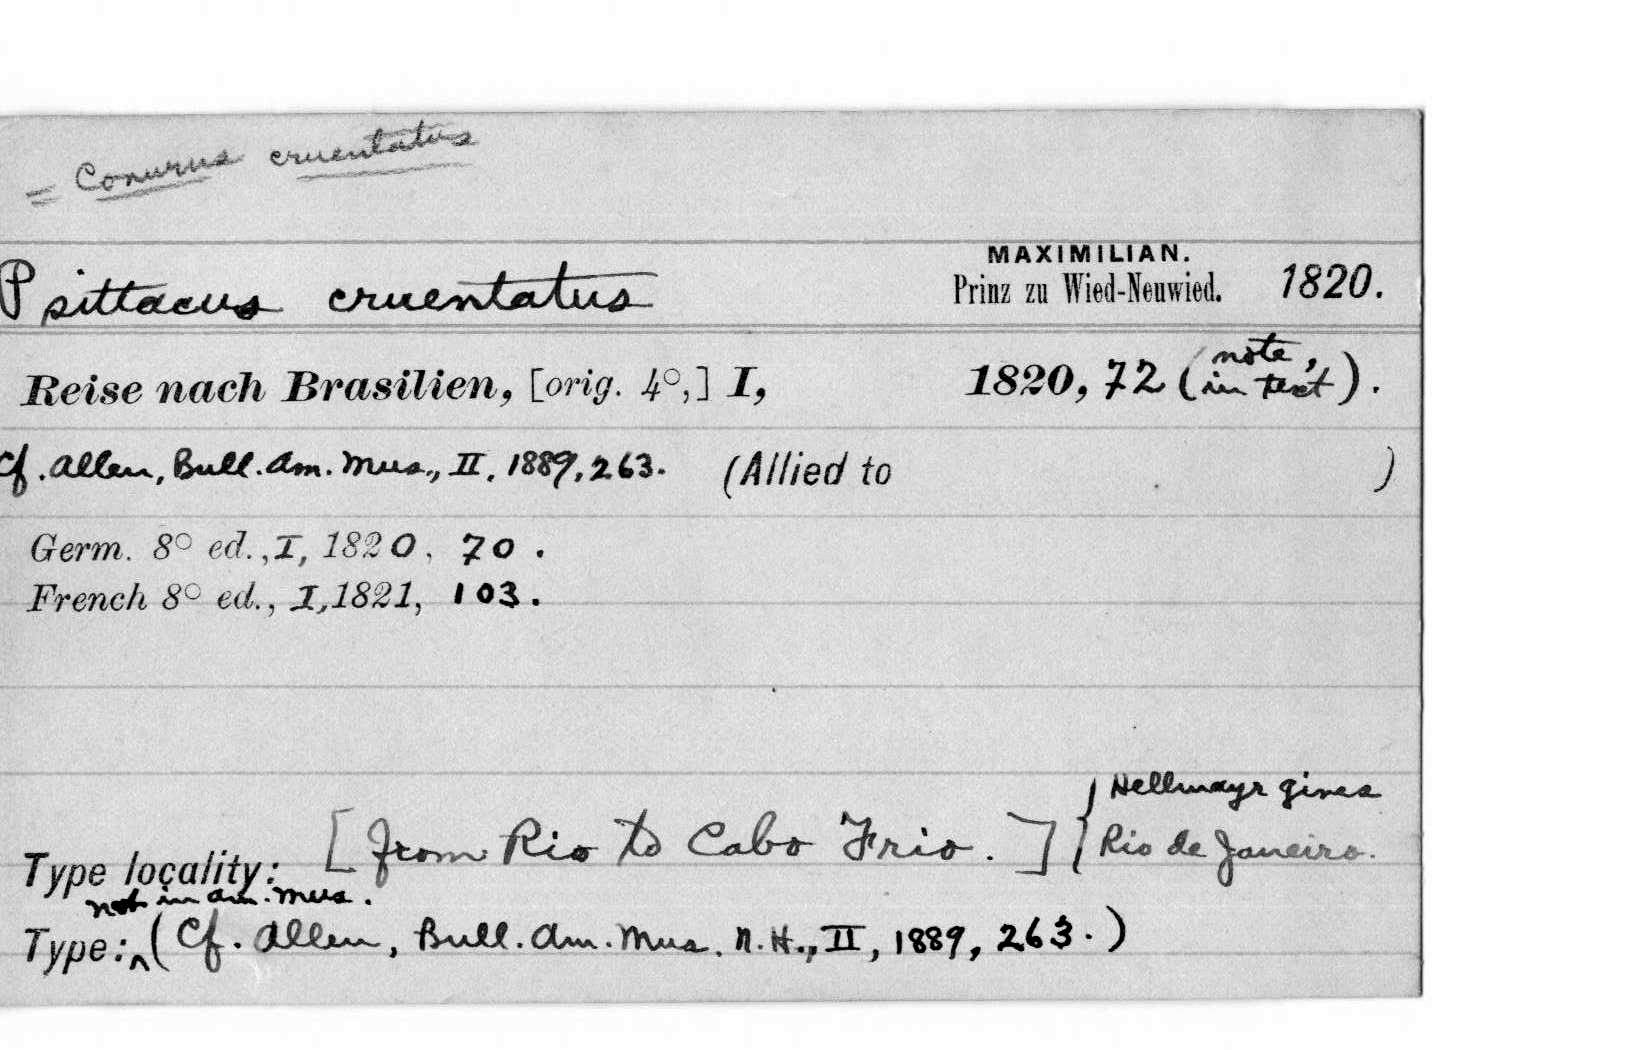 = Conurus cruentatus
MAXIMILIAN.
Psittacus cruentatus Prinz zu Wied-Neuwied. 1820.
Reise nach Brasilien, [orig. 4°,] I, 1820, 72 (note, in text).
Cf. Allen, Bull. Am. Mus., II, 1889, 263. (Allied to )
Germ. 8° ed., I, 1820, 70.
French 8° ed., I, 1821, 103.
Hellmayr gives
Type locality: [from Rio to Cabo Frio.] { Rio de Janeiro.
not in Am. Mus.
Type: ^ (Cf. Allen, Bull. Am. Mus. N. H., II, 1889, 263.)